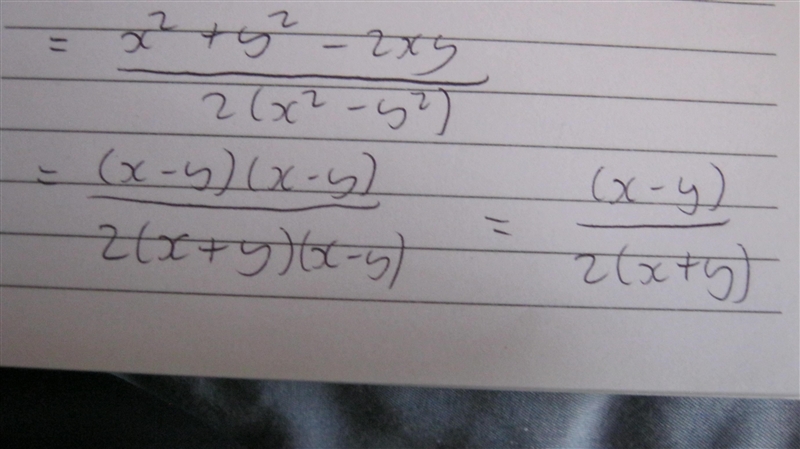 = x² + y² - 2xy / 2(x² - y²)
= (x-y)(x-y) / 2(x+y)(x-y) = (x-y) / 2(x+y)